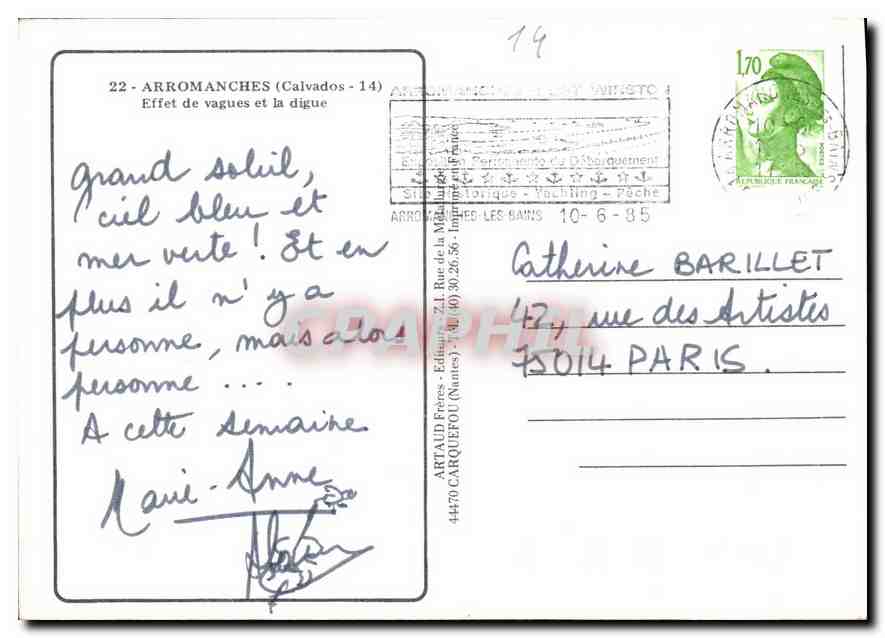 14
22 - ARROMANCHES (Calvados - 14)
Effet de vagues et la digue
grand soleil,
ciel bleu et
mer verte ! Et en
plus il n'y a
personne, mais alors
personne ....
A cette semaine
Marie-Anne
ARTAUD Frères - Editeurs - Z.I. Rue de la Métallurgie
44470 CARQUEFOU (Nantes) - Tél. (40) 30.26.56 - Imprimé en France
Exposition Permanente du Débarquement
Site Historique - Yachting - Pêche
ARROMANCHES-LES-BAINS 10-6-85
1,70
REPUBLIQUE FRANÇAISE
Catherine BARILLET
42, rue des Artistes
75014 PARIS.
CPAPHIL